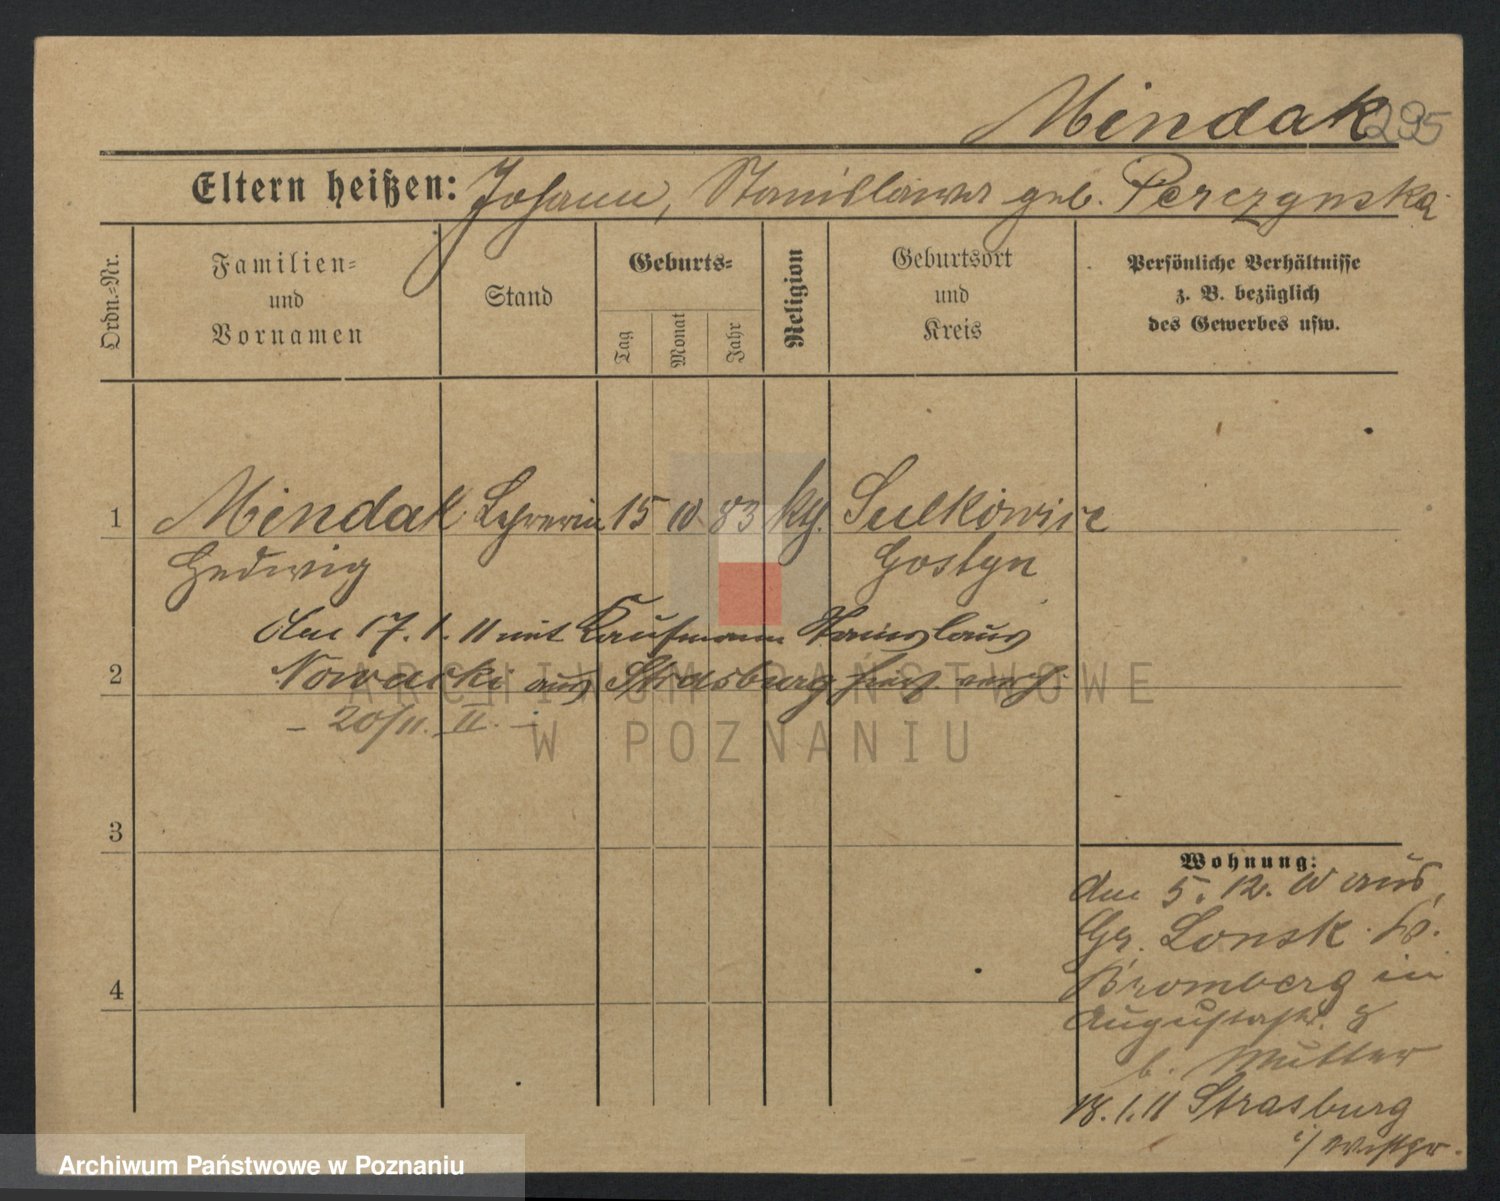 Mindak 295
Eltern heißen: Johann, Stanislawa geb. Perczynska
Ordn.=Nr.
Familien= und Vornamen
Stand
Geburts=
Tag
Monat
Jahr
Religion
Geburtsort und Kreis
Persönliche Verhältnisse
z. B. bezüglich
des Gewerbes usw.
1 Mindak Lehrerin 15 10 83 kth. Sulkowice
Hedwig Gostyn
Am 17. 1. 11 mit Kaufmann Stanislaus
2 Nowacki aus Strasburg hier verh.
- 20/11. II. -
3
4
Wohnung:
Am 5. 12. 10 aus
Gr. Lonsk Kr.
Bromberg in
Augustastr. 8
b. Mutter
18. 1. 11 Strasburg
i/ Westpr.
ARCHIWUM PAŃSTWOWE
W POZNANIU
Archiwum Państwowe w Poznaniu